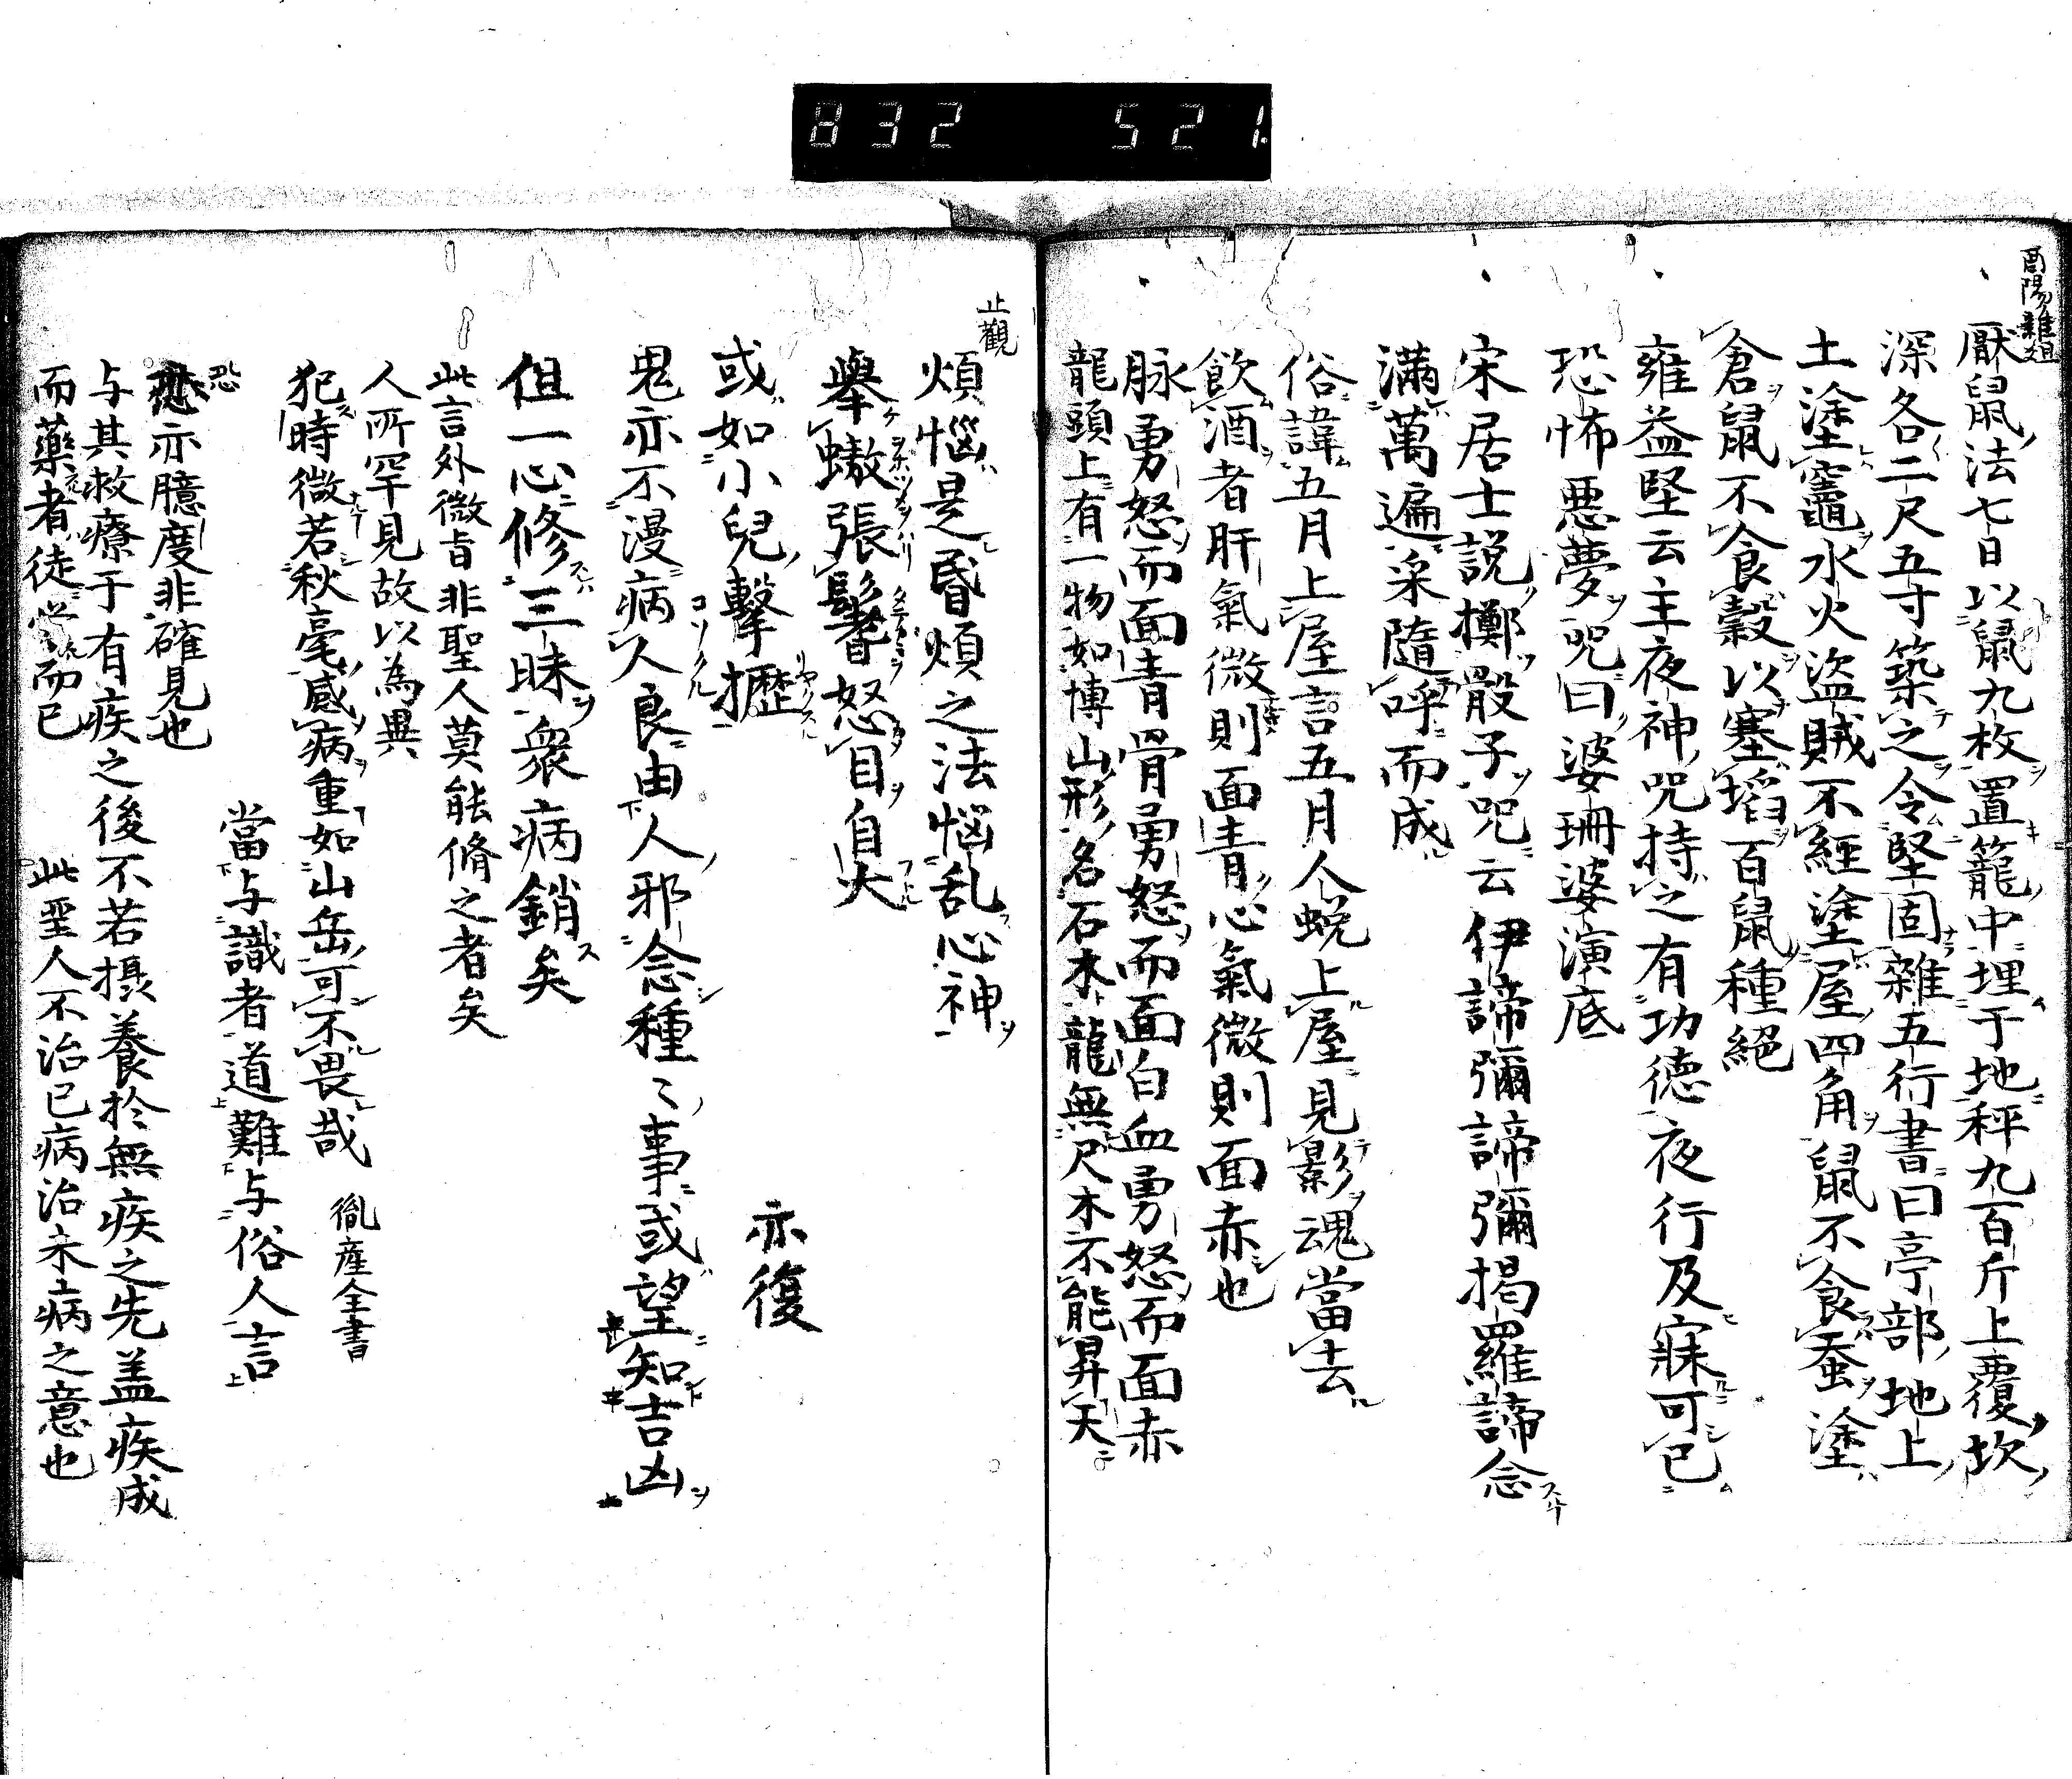 832 521
酉陽雜俎
厭鼠法七日以鼠九枚置籠中埋于地秤九百斤上覆坎
深各二尺五寸築之令堅固雜五行書曰亭部地上
土塗竈水火盜賊不經塗屋四角鼠不食蚕塗
倉鼠不食穀以塞埳百鼠種絕
雍益堅云主夜神咒持之有功徳夜行及寐可已
恐怖悪夢咒曰婆珊婆演底
宋居士説擲骰子咒云伊諦彌諦彌揭羅諦念
満萬遍采隨呼而成
俗諱五月上屋言五月人蜕上屋見影魂當去
飲酒者肝氣微則面青心氣微則面赤也
脉勇怒而面青骨勇怒而面白血勇怒而面赤
龍頭上有一物如博山形名尺木龍無尺木不能昇天
止觀
煩惱是昏煩之法惱乱心神
舉螯張鬐怒目自大
或如小兒擊攊 亦復
鬼亦不漫病人良由人邪念種〻事或望知吉凶
但一心修三昧衆病銷矣
此言外微旨非聖人莫能脩之者矣
人所罕見故以為異
犯時微若秋毫感病重如山岳可不畏哉 胤産全書
當与識者道難与俗人言
恐亦臆度非確見也
与其救療于有疾之後不若摂養於無疾之先盖疾成
而藥者徒労而已 此聖人不治已病治未病之意也